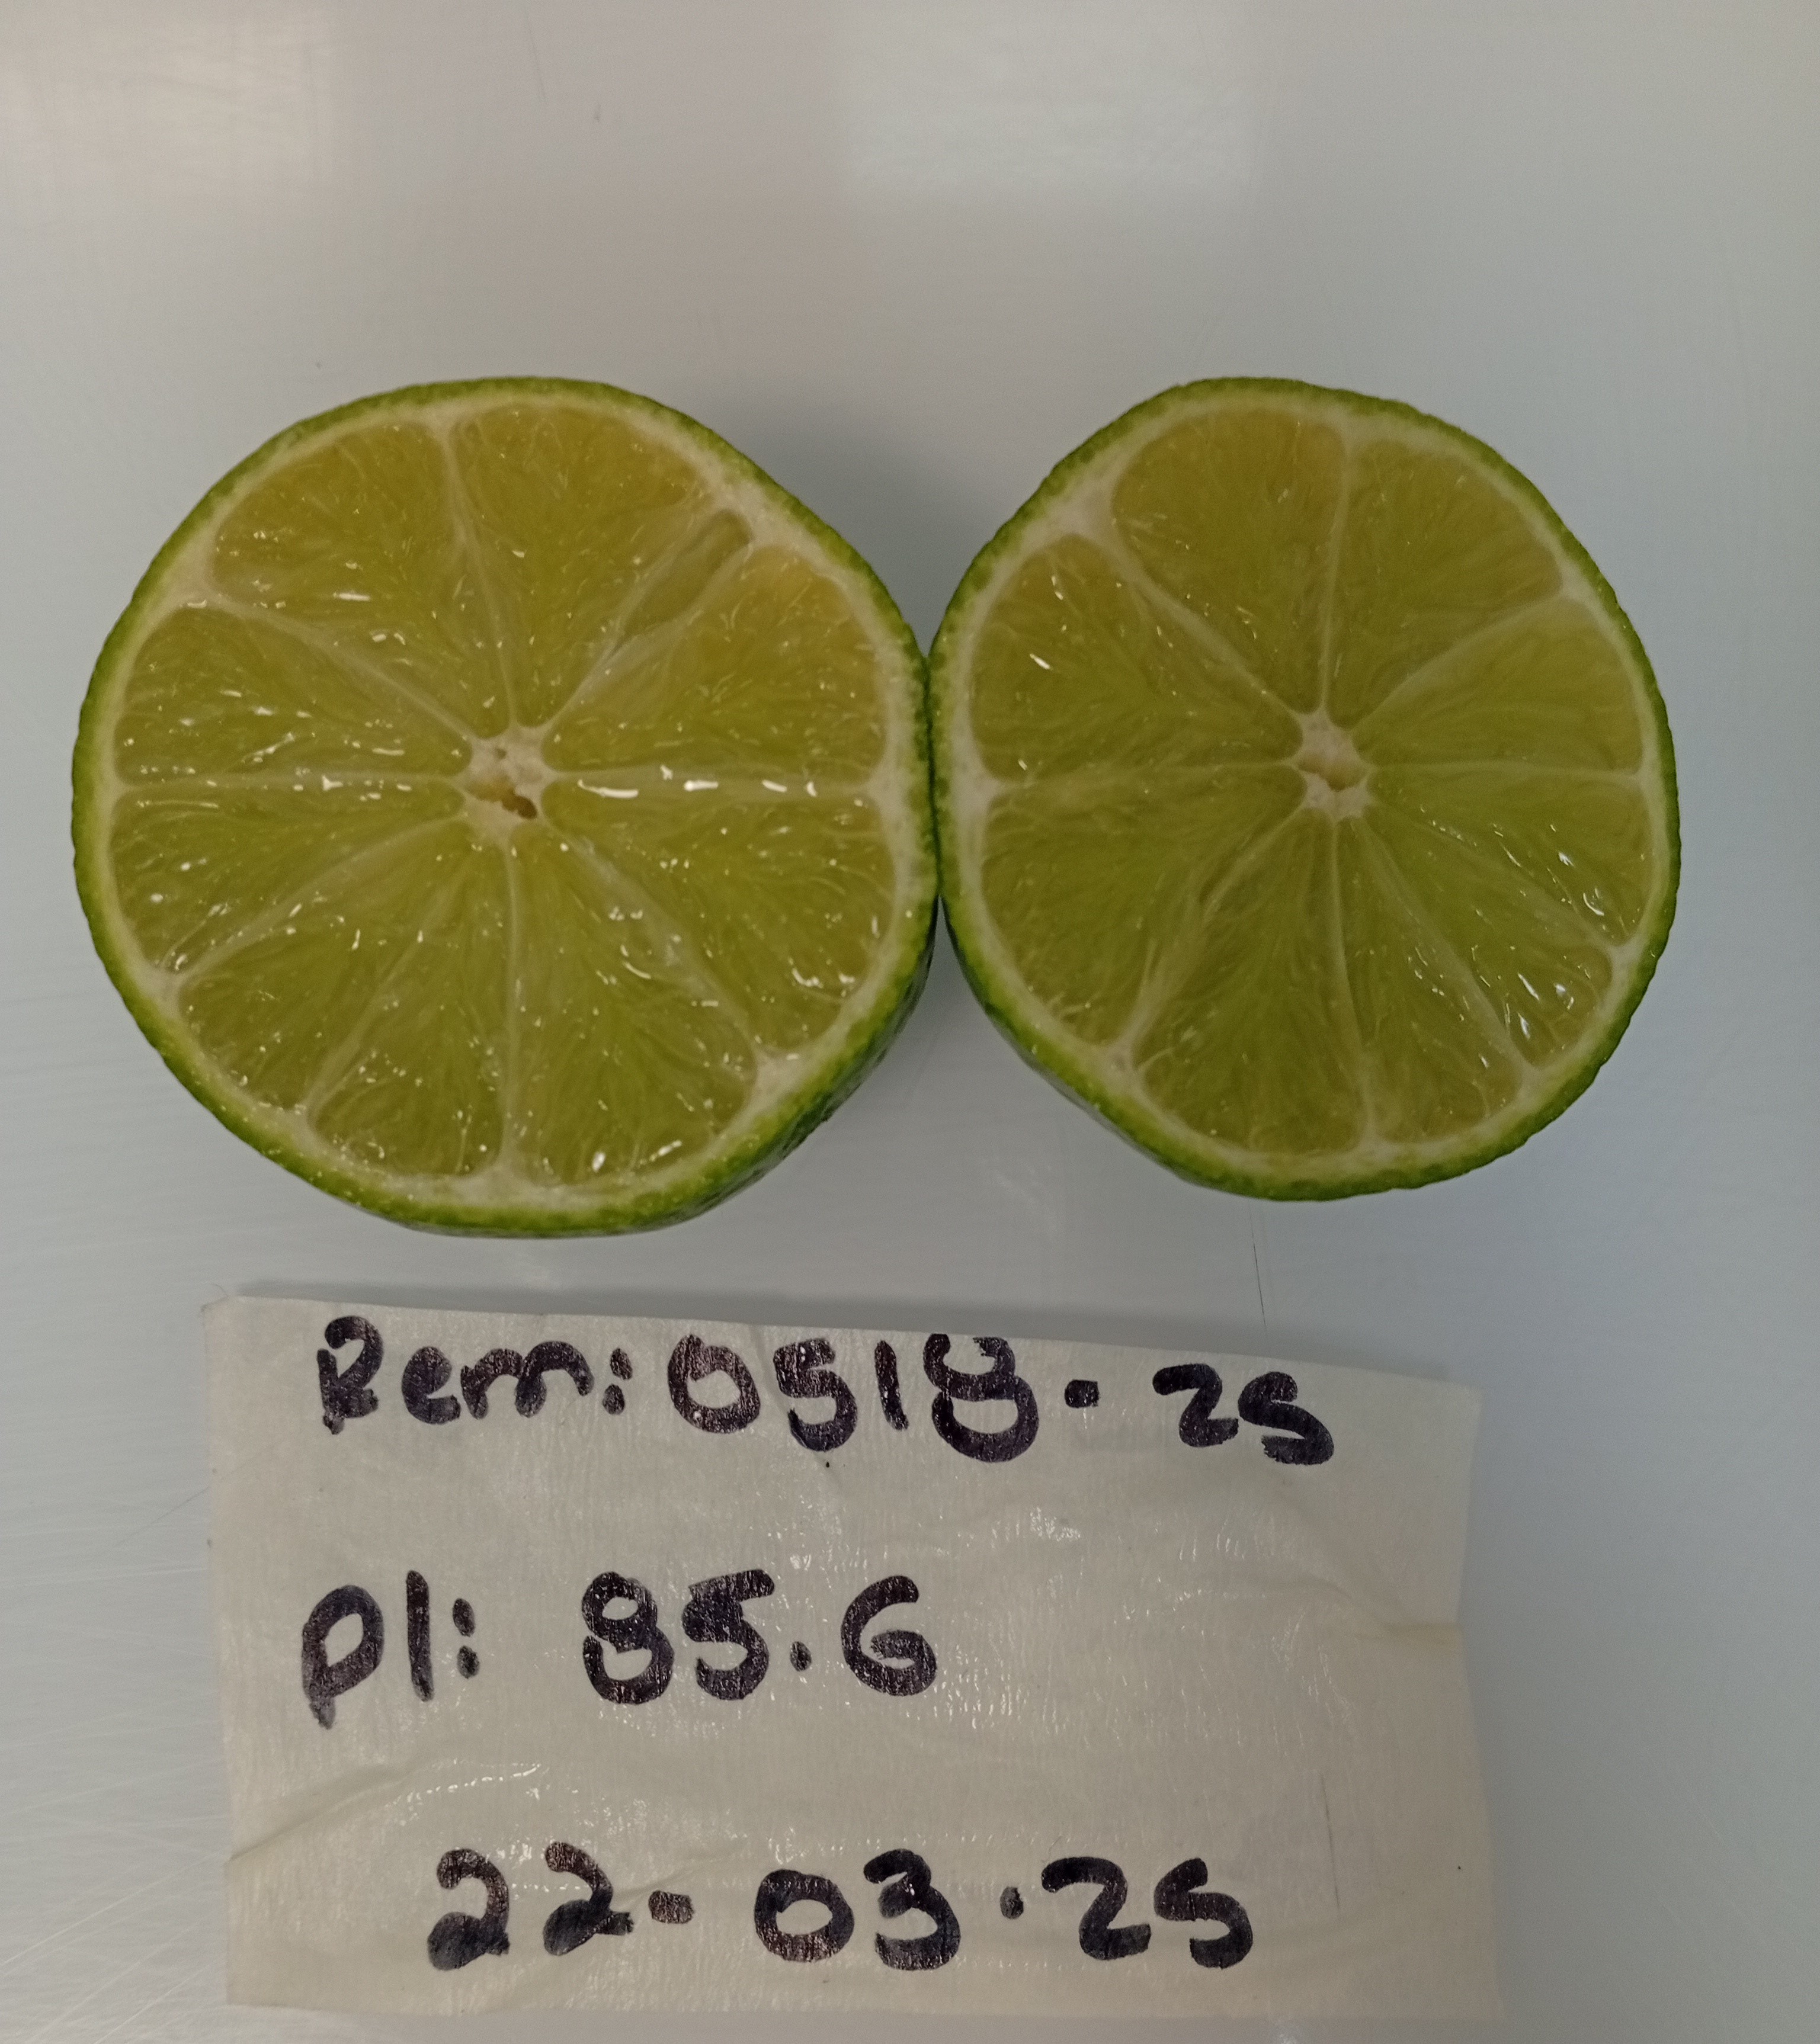 Rem: 0518-25
PI: 85.6
22-03-25